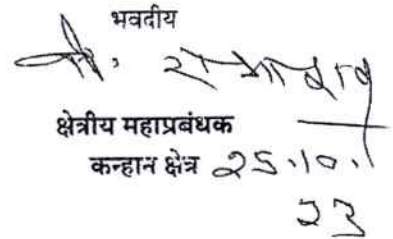 भवदीय
क्षेत्रीय महाप्रबंधक
कन्हान क्षेत्र 25.10.
23